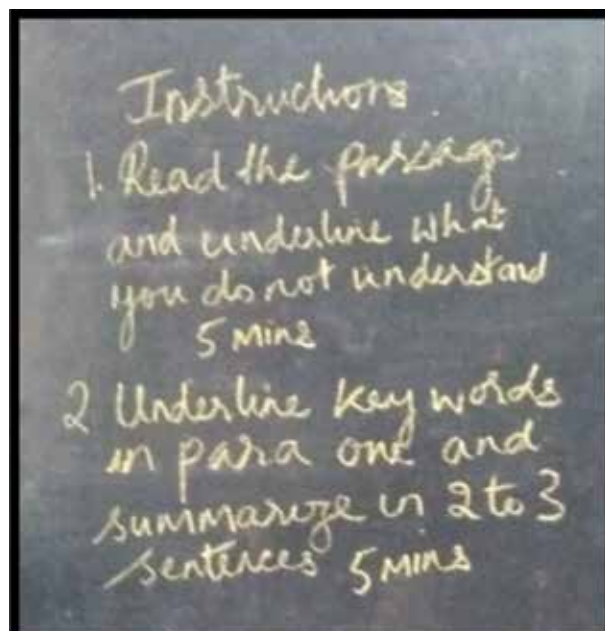 Instructions
1. Read the passage
and underline what
you do not understand
5 Mins
2 Underline key words
in para one and
summarize in 2 to 3
sentences 5 Mins